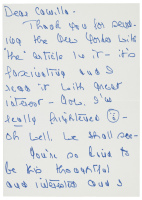 Dear Camilla -
Thank you for send-
ing the Vera Gordon with
"the" article in it - it's
fascinating and I
read it with great
interest - Gov. I'm
really frightened
oh well. We shall see -
You're so kind to
be so thoughtful
and interested and I